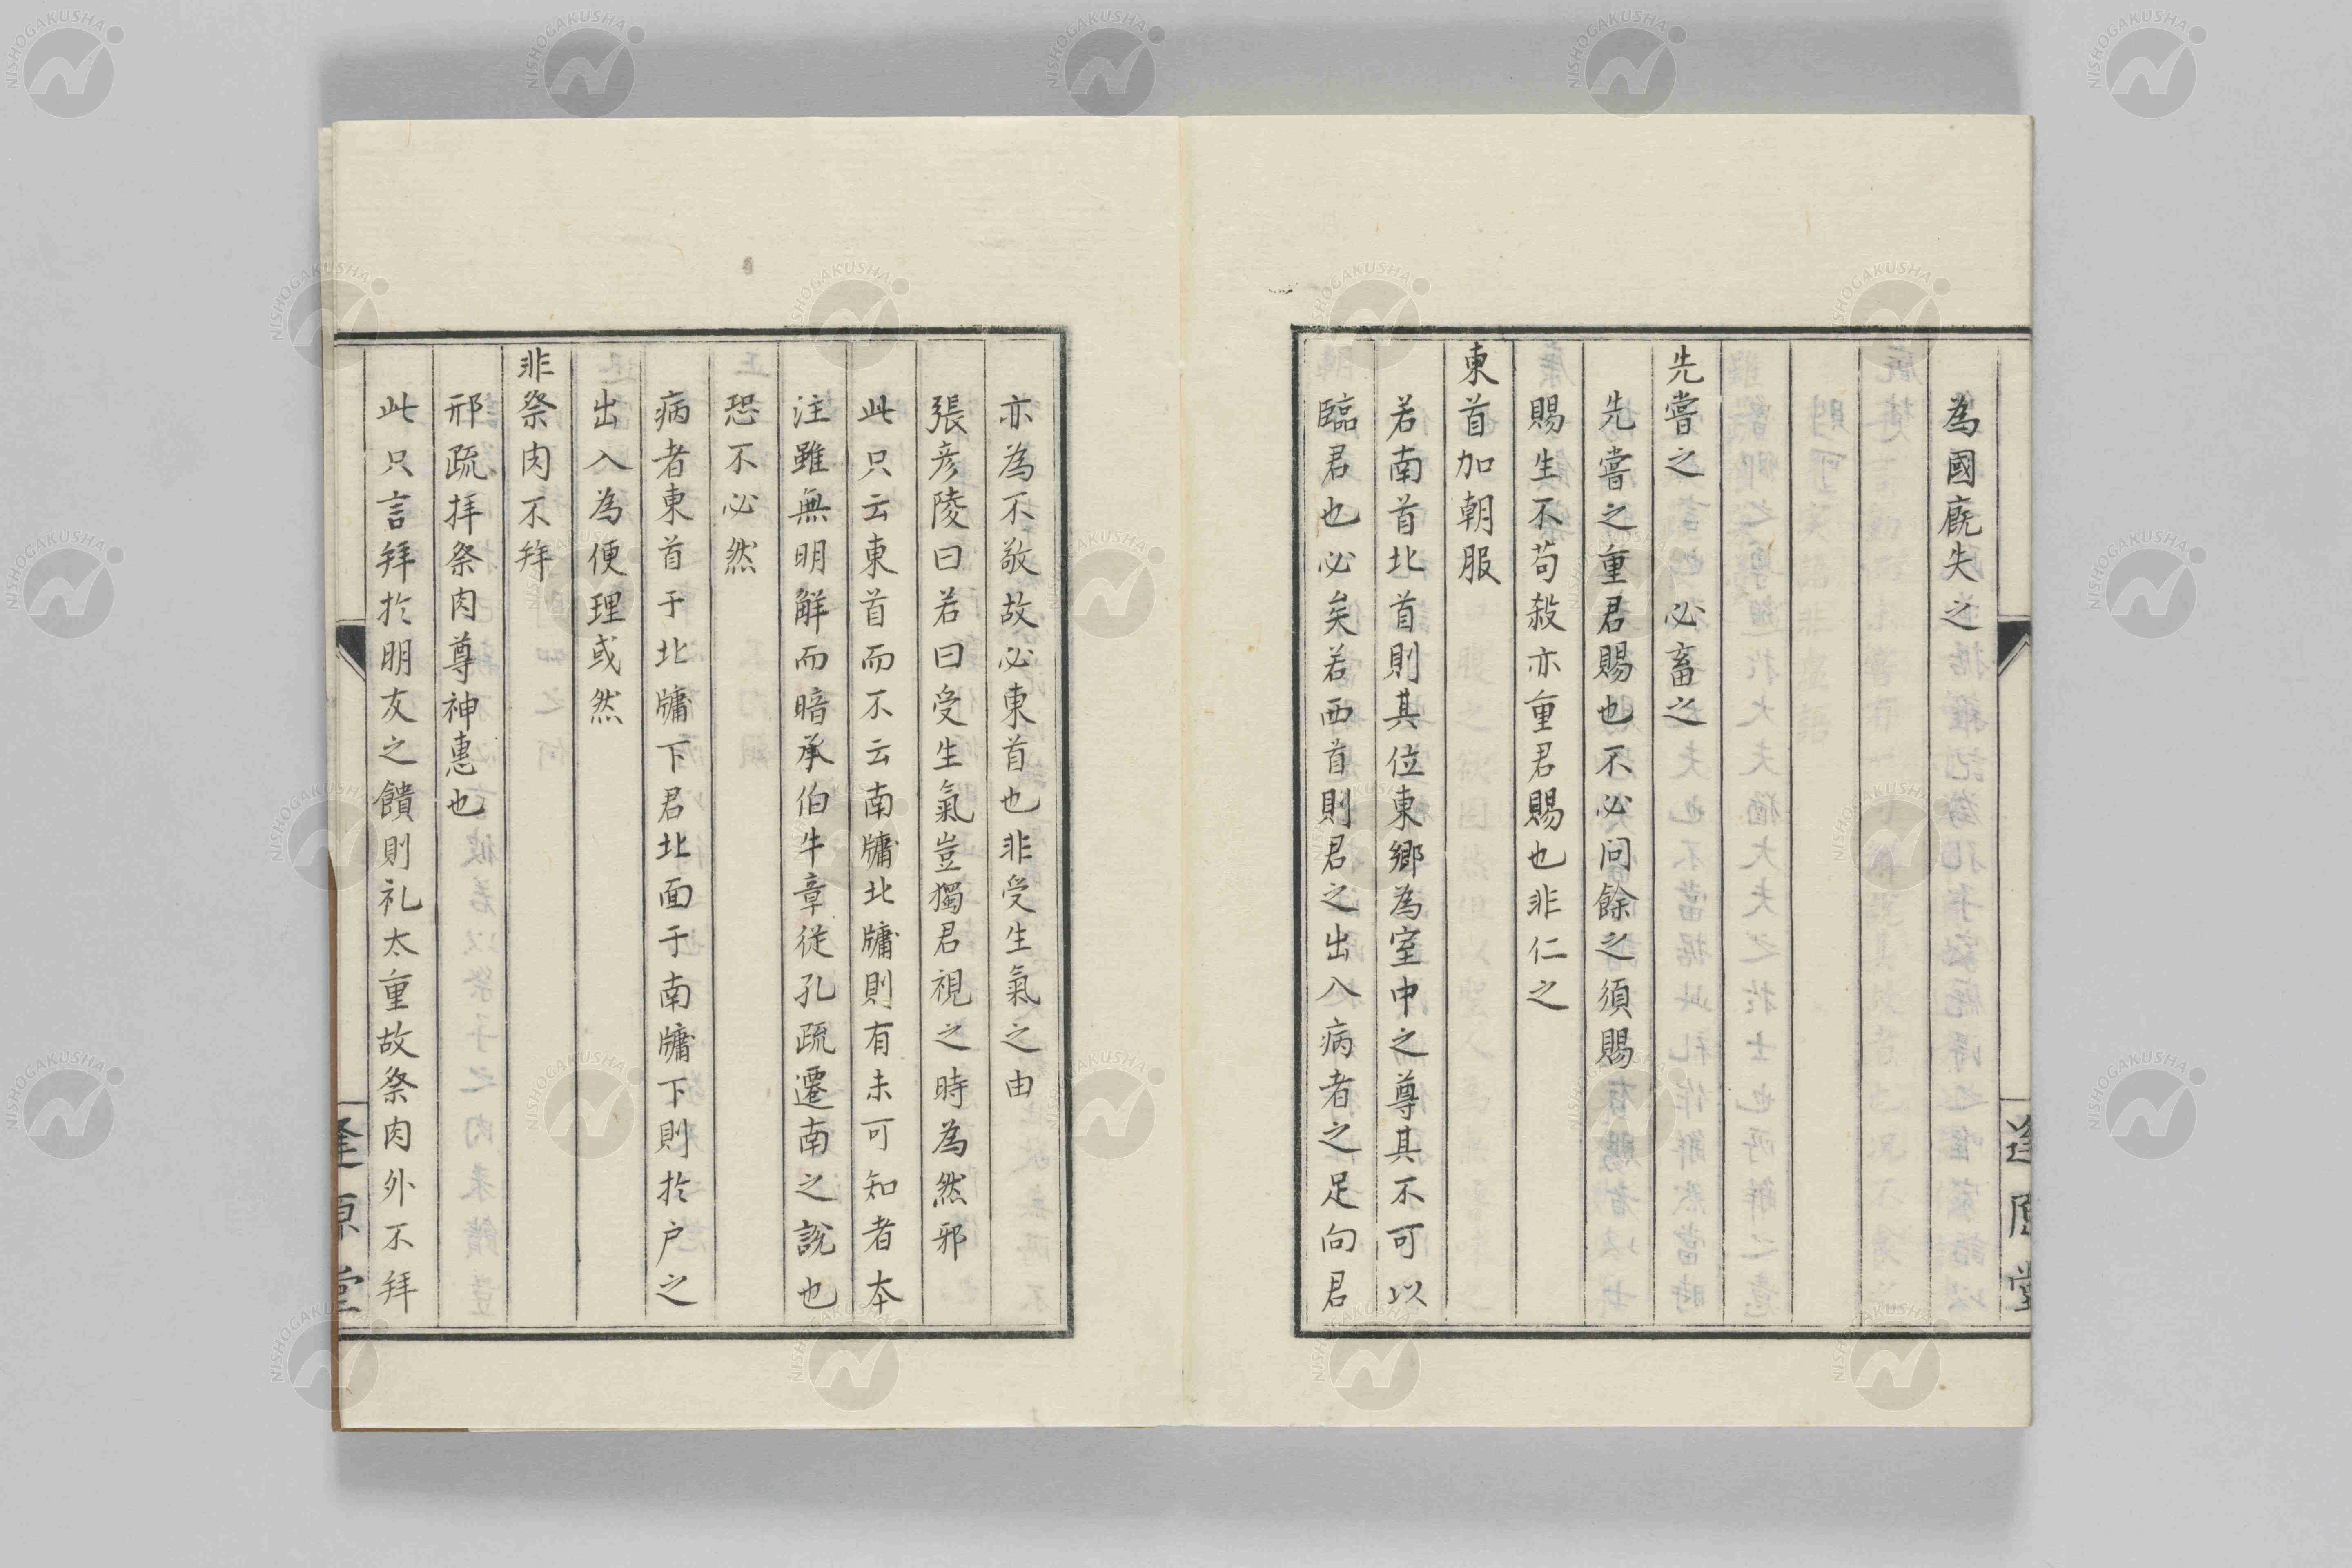 為國廐失之
先嘗之　必畜之
先嘗之重君賜也不必問餘之須賜
賜生不苟殺亦重君賜也非仁之
東首加朝服
若南首北首則其位東鄉為室中之尊其不可以
臨君也必矣若西首則君之出入病者之足向君
亦為不敬故必東首也非受生氣之由
張彦陵曰若曰受生氣豈獨君視之時為然邪
此只云東首而不云南牖北牖則有未可知者本
注雖無明解而暗承伯牛章從孔疏遷南之說也
恐不必然
病者東首于北牖下君北面于南牖下則於户之
出入為便理或然
非祭肉不拜
邢疏拝祭肉尊神惠也
此只言拜於朋友之饋則礼太重故祭肉外不拜
逢原堂
NISHOGAKUSHA